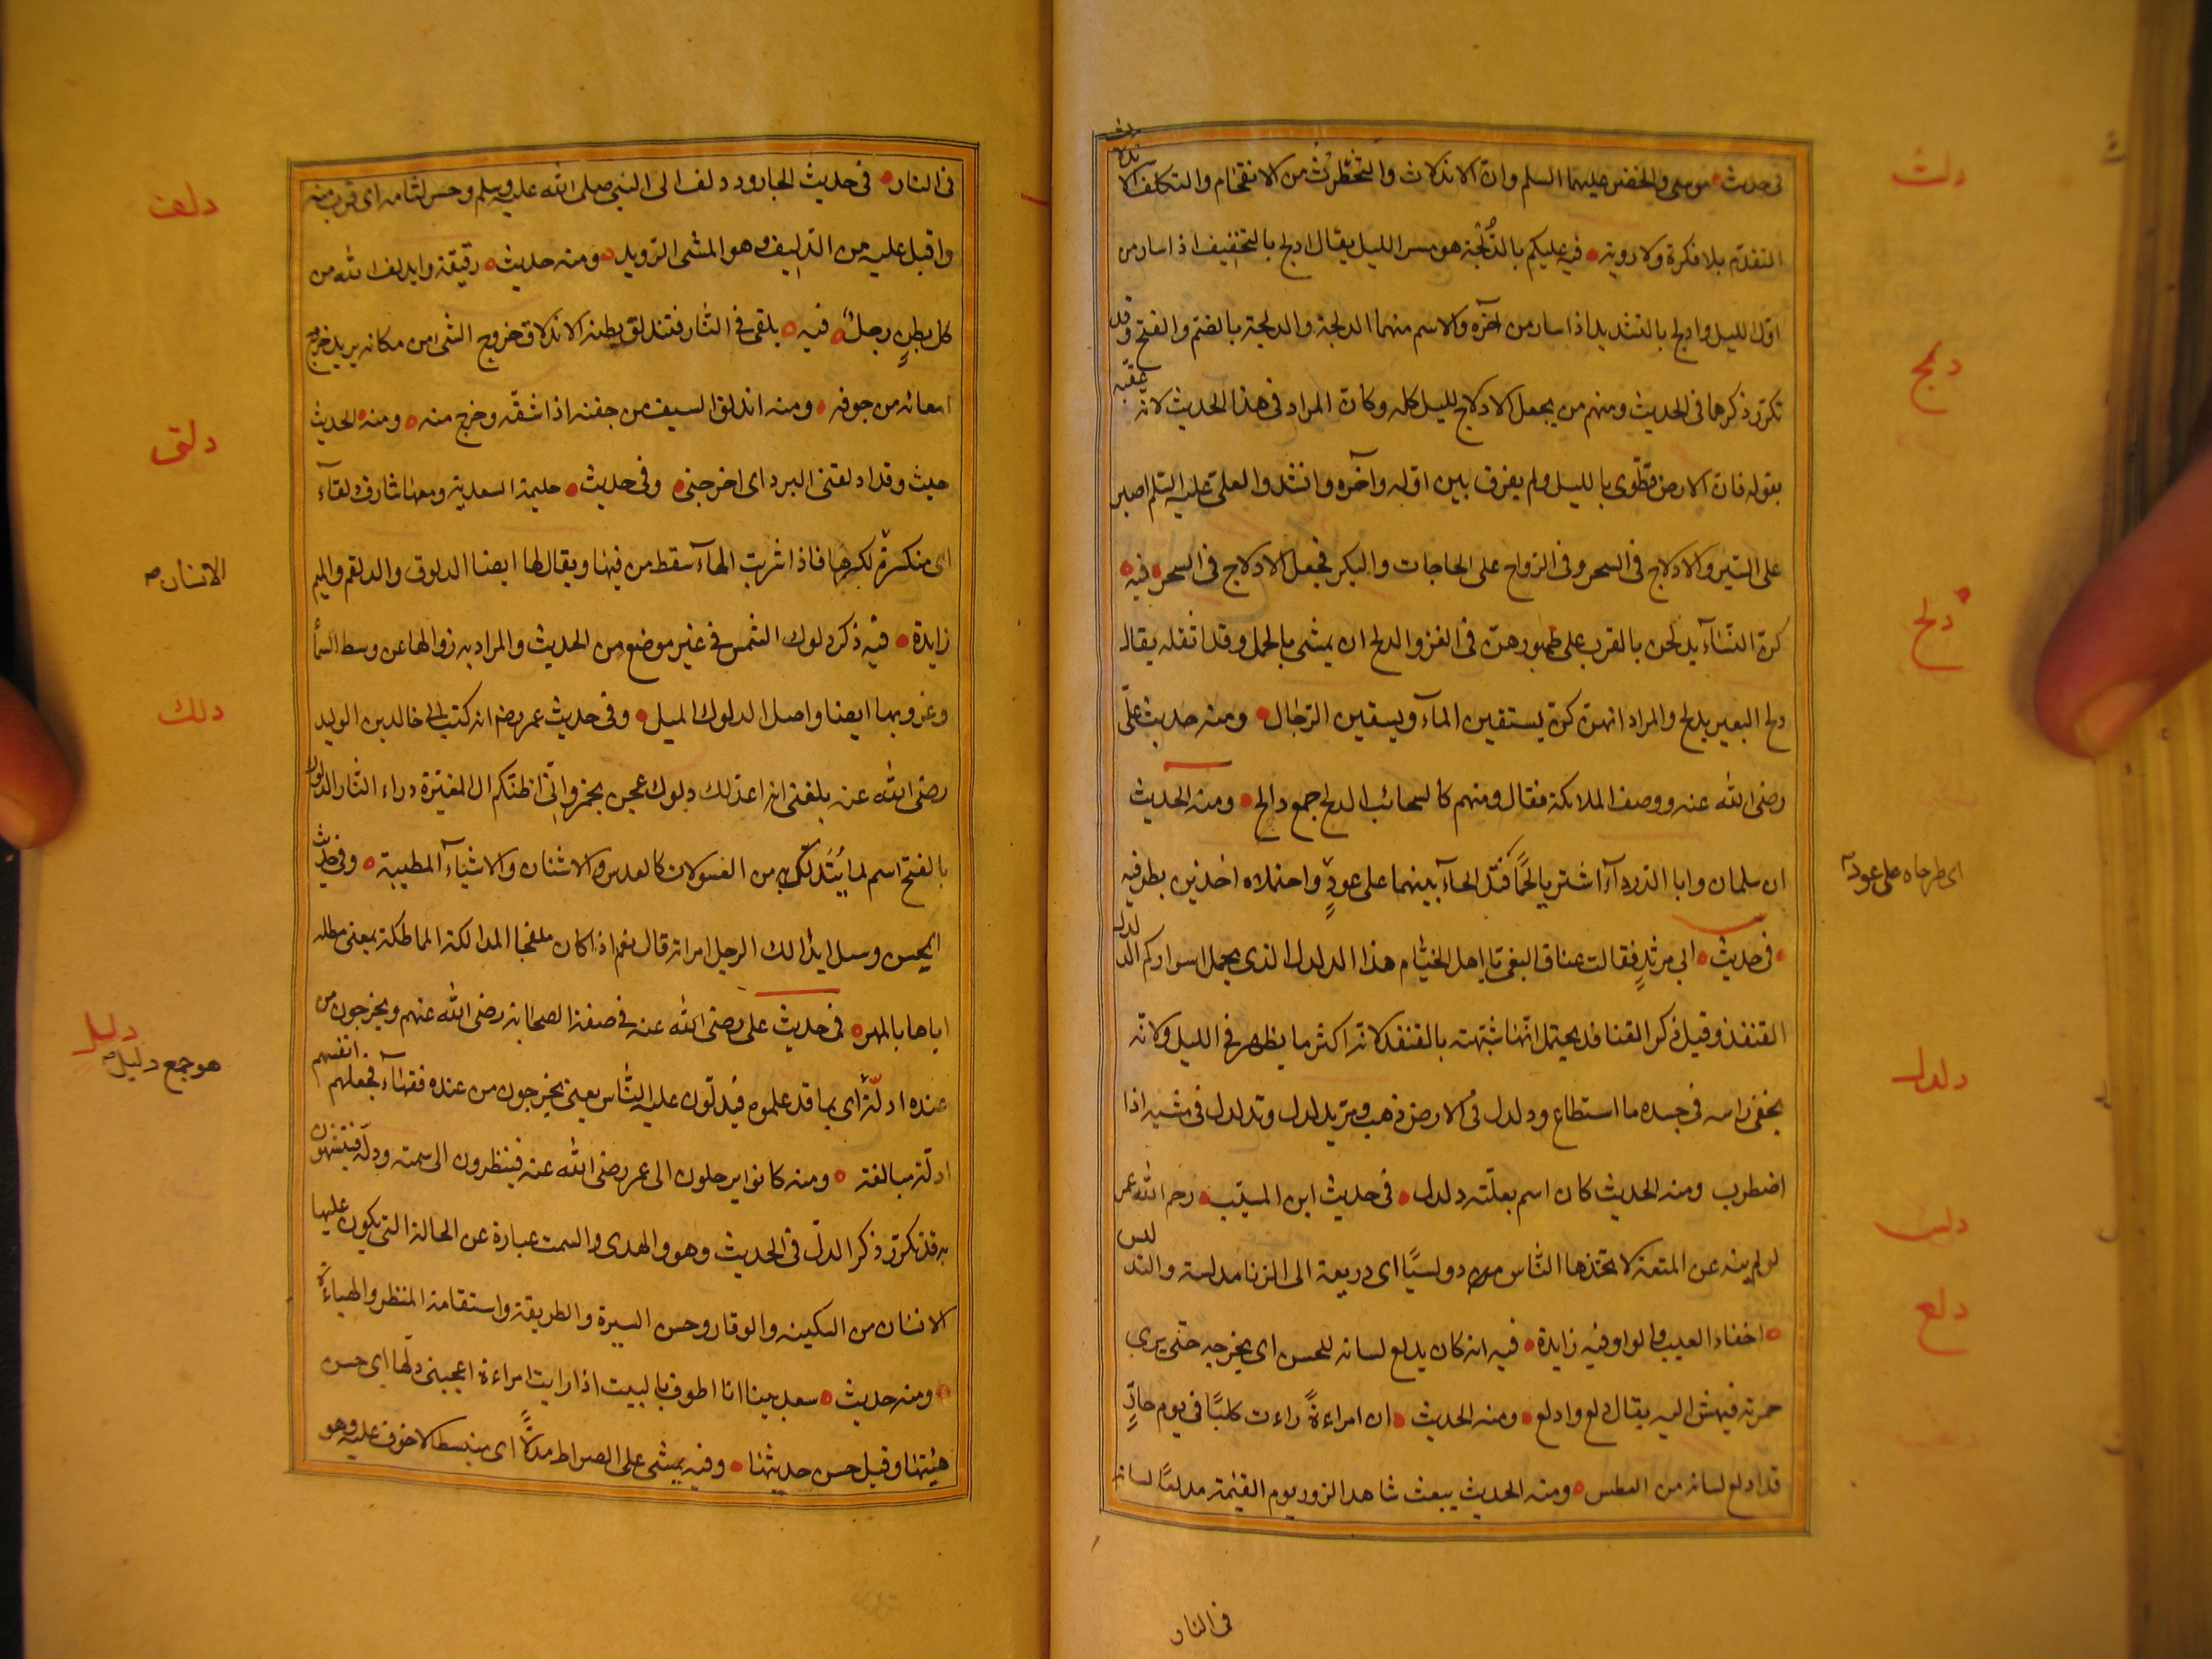 دلث
فى حديث موسى والخضر عليهما السلم وان الاندلاث والتخطرف من الانقحام والتكلف الاندلاث
التقدّم بلا فكرة ولا روية فيه عليكم بالدُّلْجَة هو سير الليل يقال ادلج بالتخفيف اذا سار من
اوّل الليل وادلج بالتشديد اذا سار من آخره والاسم منهما الدلجة والدلجة بالضم والفتح وقد
دلج
تكرّر ذكرها فى الحديث ومنهم من يجعل الادلاج لليل كله وكان المراد فى هذا الحديث لانه عقبه
بقوله فان الارض تطوى بالليل ولم يفرق بين اوله وآخره وانشدوا لعلى عليه السلم اصبر
على السير والادلاج فى السحر وفى الرواح على الحاجات والبكر فجعل الادلاج فى السحر فيه
دلح
كنّ النسآء يدلحن بالقرب على ظهورهن فى الغزو الدلح ان يمشى بالحمل وقد اثقله يقال
دلح البعير يدلح والمراد انهن كن يستقين المآء ويسقين الرجال ومنه حديث علىّ
رضى الله عنه ووصف الملائكة فقال ومنهم كالسحائب الدلح جمع دالح ومنه الحديث
ان سلمان وابا الدردآء اشتريا لحمًا فتدالحآه بينهما على عودٍ واحتملاه اخذين بطرفيه
اى طرحاه على عود
فى حديث ابى مرثدٍ فقالت عناق البغى يا اهل الخيام هذا الدلدل الذى يحمل اسراركم الدلدل
القنفذ وقيل ذكر القنافذ يحتمل انها شبهته بالقنفذ لانه اكثر ما يظهر فى الليل ولانه
دلدل
يخفى راسه فى جسده ما استطاع ودلدل فى الارض ذهب ومرّ يدلدل وتدلدل فى مشيه اذا
اضطرب ومنه الحديث كان اسم بغلته دلدل فى حديث ابن المسيّب رحم الله عمر
دلس
لو لم ينه عن المتعة لاتخذها الناس دولسيًّا اى ذريعة الى الزنا مدلسة والتدليس
دلع
اخفاء العيب والواو فيه زايدة فيه انه كان يدلع لسانه للحسن اى يخرجه حتى يرى
حمرته فيهش اليه يقال دلع وادلع ومنه الحديث ان امراءةً راءت كلبًا فى يوم حارٍّ
قد ادلع لسانه من العطس ومنه الحديث يبعث شاهد الزور يوم القيمة مدلعًا لسانه
فى النار
فى النار فى حديث الجارود دلف الى النبى صلى الله عليه وسلم وحسر لثامه اى قرب منه
دلف
واقبل عليه من الدليف وهو المشى الرويد ومنه حديث رقيقة وليدلف اليه من
كل بطنٍ رجلٌ فيه يلقى فى النار فتندلق بطنه الاندلاق خروج الشى من مكانه يريد خروج
امعائه من جوفه ومنه اندلق السيف من جفنه اذا شقّه وخرج منه ومنه الحديث
دلق
جيت وقد ادلقنى البرد اى اخرجنى وفى حديث حليمة السعدية ومعها شارف دلقآء
اى منكسرة لكبرها فاذا شربت المآء سقط من فيها ويقال لها ايضا الدلوق والدلقم والميم
الاسنان
زايدة فيه ذكر دلوك الشمس فى غير موضع من الحديث والمراد به زوالها عن وسط السما
دلك
وغروبها ايضا واصل الدلوك الميل وفى حديث عمر رضه انه كتب الى خالد بن الوليد
رضى الله عنه بلغنى انه اعد لك دلوك عجن بخمر وانى اظنكم ال المغيرة ذراء النار الدلوك
بالفتح اسم لما يُتَدلّك به من الغسولات كالعدس والاشنان والاشياء المطيبة وفى حديث
الحسن وسيل ايدالك الرجل امراته قال نعم اذا كان ملفجا المدالكة المماطلة بمعنى مطله
اياها بالمهر فى حديث على رضى الله عنه فى صفة الصحابة رضى الله عنهم ويخرجون من
دليل
هو جمع دليل
عنده ادلّة اى بما قد علموه فيدلّون عليه الناس يعنى يخرجون من عنده فقهاء فجعلهم انفسهم
ادلّة مبالغة ومنه كانوا يرحلون الى عمر رضى الله عنه فينظرون الى سمته ودلّه فيتشبهون
به قد تكرر ذكر الدلّ فى الحديث وهو والهدى والسمت عبارة عن الحالة التى يكون عليها
الانسان من السكينه والوقار وحسن السيرة والطريقة واستقامة المنظر والهياءة
ومنه حديث سعد بينا انا اطوف بالبيت اذا رايت امراءة اعجبنى دلها اى حسن
هيئتها وقيل حسن حديثها وفيه يمشى على الصراط مدلًّا اى منبسطا لا خوف عليه وهو